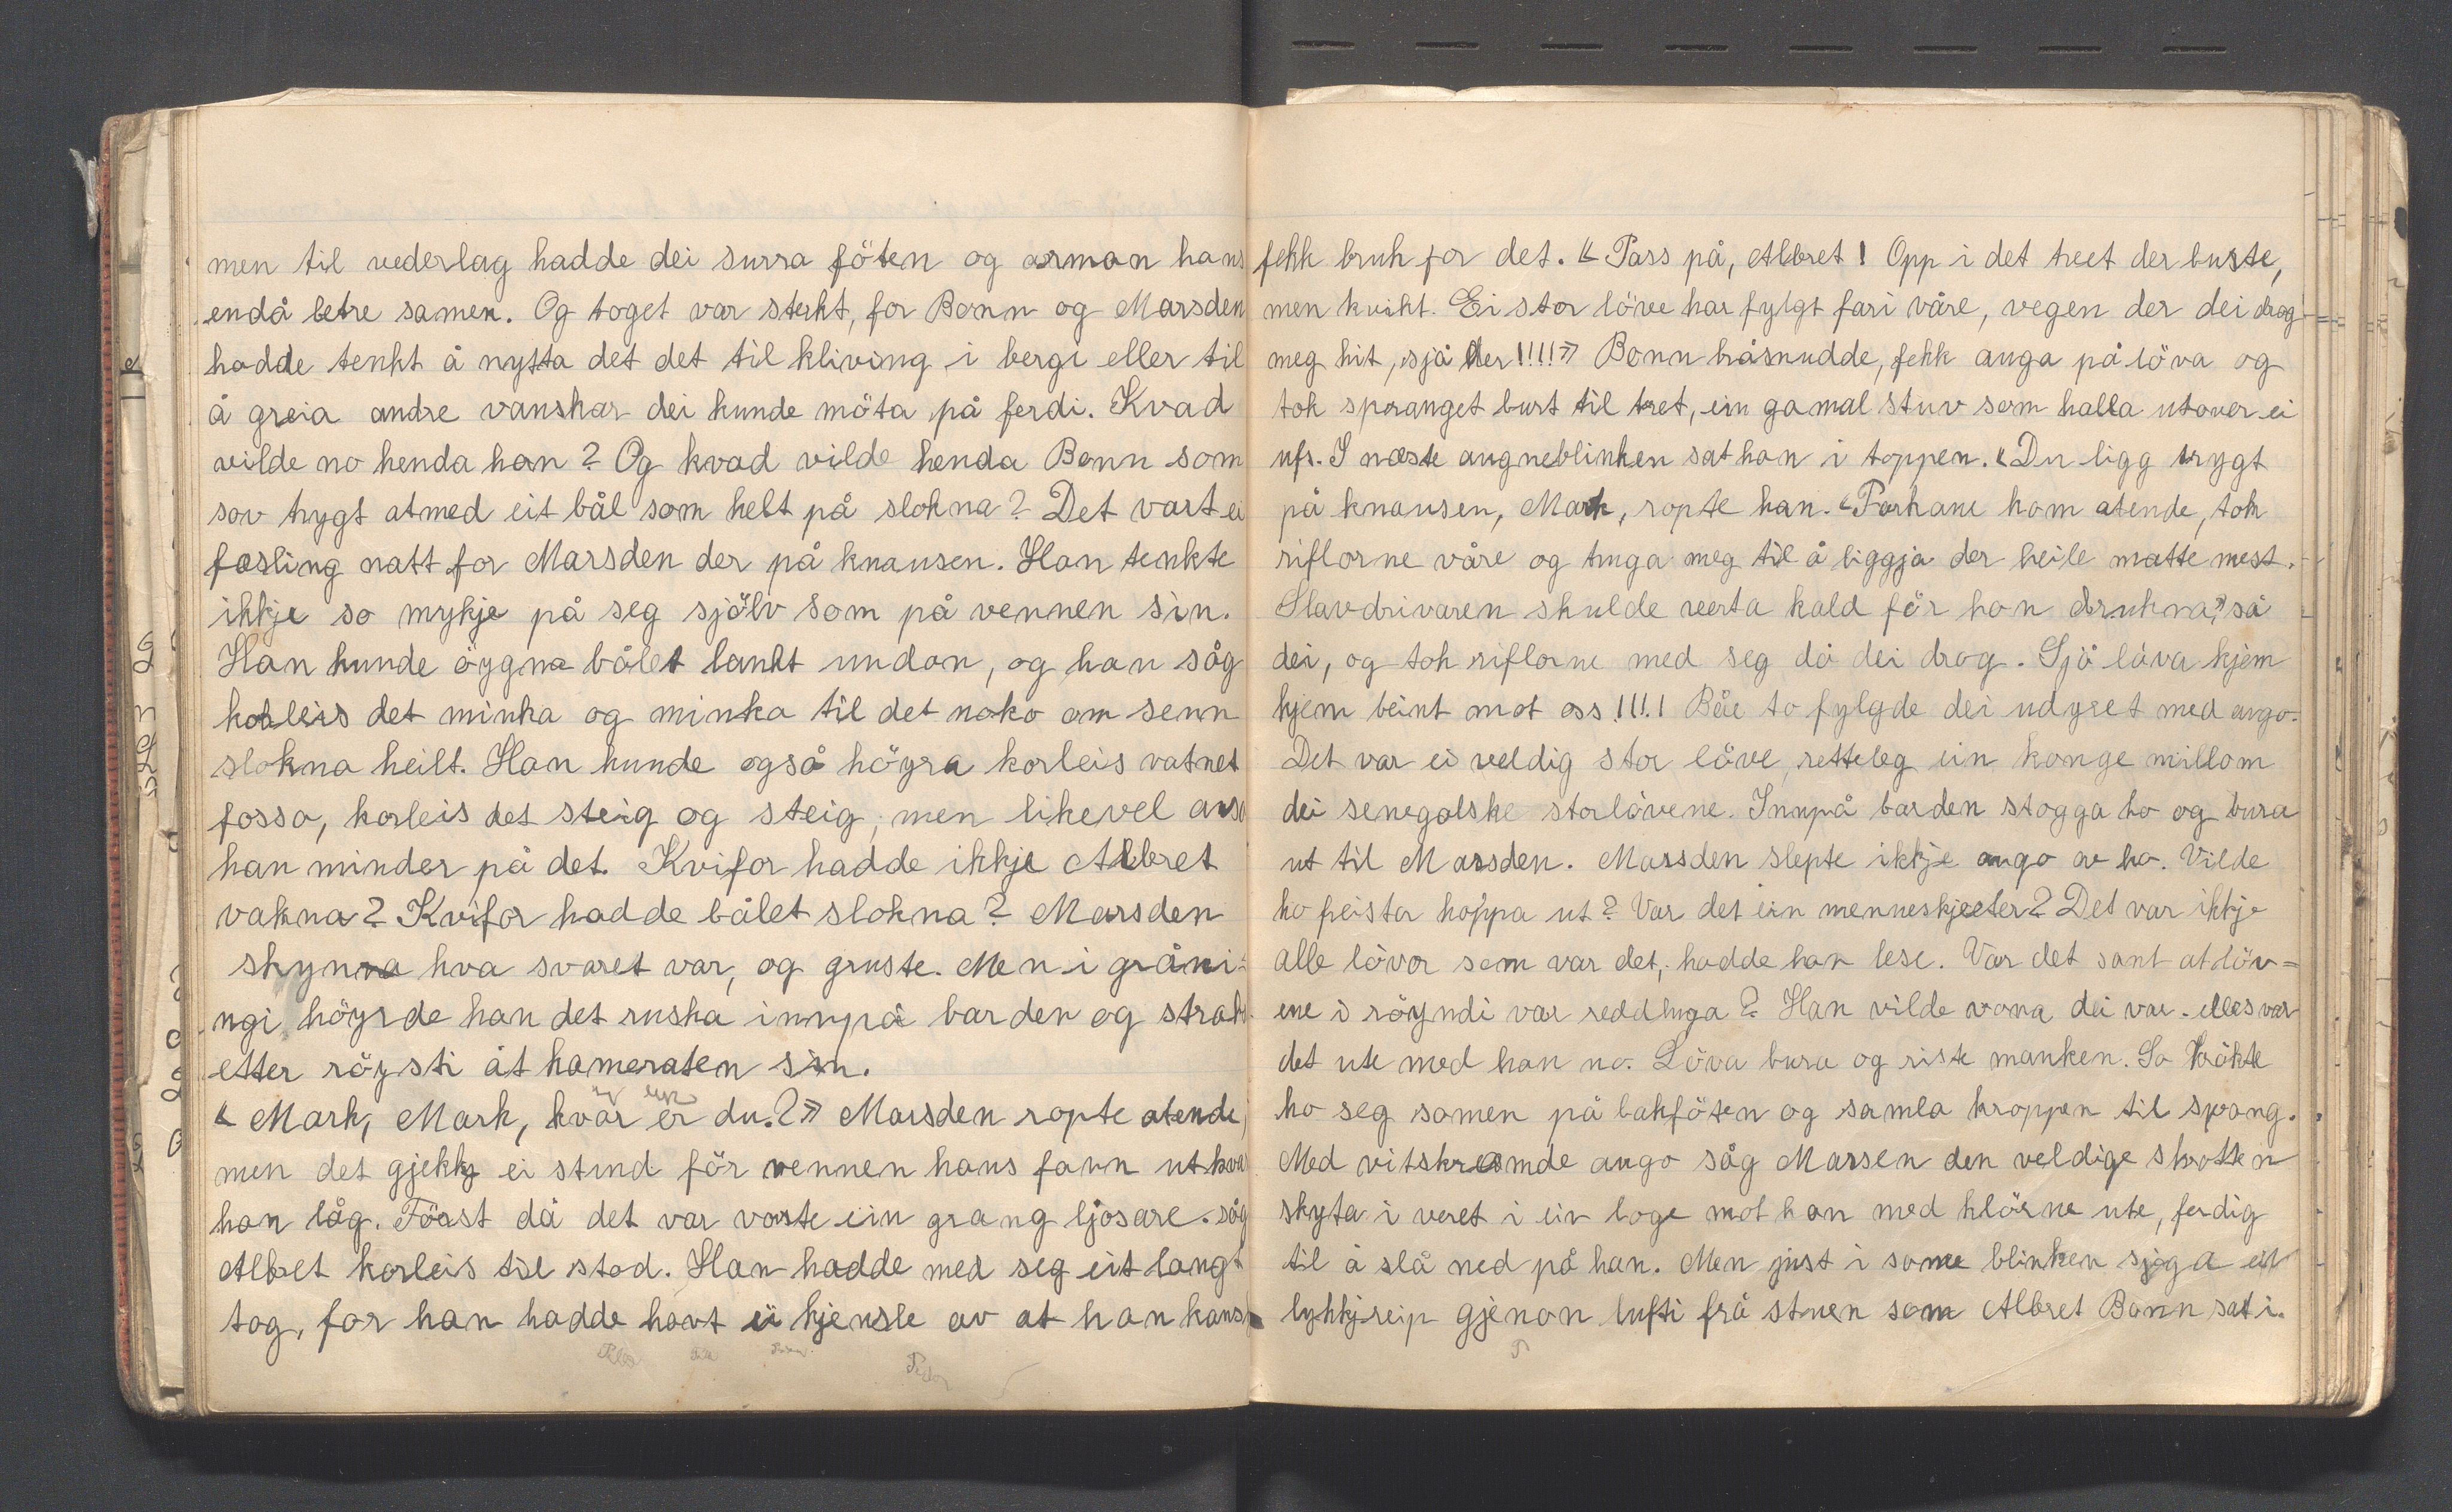 men til vederlag hadde dei surra föten og arman hans
endå betre samen. Og toget var sterkt, for Bonn og Marsden
hadde tenkt å nytta det det til kliving i bergi eller til
å greia andre vanskar dei kunde möta på ferdi. Kvad
vilde no henda han? Og kvad vilde henda Bonn som
sov trygt atmed eit bål som helt på slokna? Det vart ei
fæsling natt for Marsden der på knausen. Han tenkte
ikkje so mykje på seg sjölv som på vennen sin.
Han kunde öygna bålet lankt undan, og han såg
korleis det minka og minka til det noko om senn
slokna heilt. Han kunde også höyra korleis vatnet
fossa, korleis det steig og steig, men likevel ansa
han minder på det. Kvifor hadde ikkje Albret
vakna? Kvifor hadde bålet slokna? Marsden
skynna hva svaret var, og gruste. Men i gråni-
ngi höyrde han det ruska innpå barden og straks
etter röysti åt kameraten sin.
« Mark, Mark, kvar er du.?» Marsden ropte atende,
men det gjekk ei stund för vennen hans fann ut kvar
han låg. Först då det var vorte ein grang ljosare. såg
Albret korleis til stod. Han hadde med seg eit langt
tog, for han hadde havt ei kjensle av at han kans
fekk bruk for det. « Pass på, Albret! Opp i det treet der burte,
men kvikt. Ei stor löve har fylgt fari våre, vegen der dei drog
meg hit, sjå der!!!!» Bonn bråsnudde, fekk auga på löva og
tok spranget burt til tret, ein gamal stuv som halla utover ei
ufs. I næste augneblinken sat han i toppen. «Du ligg trygt
på knausen, Mark, ropte han. «Farhane kom atende, tok
riflorne våre og tvuga meg til å liggja der heile natte mest.
Slavdrivaren skulde verta kald för han drukna» sa
dei, og tok riflorne med seg då dei drog. Sjå löva kjem
kjem beint mot oss!!!! Båe to fylgde dei udyret med augo.
Det var ei veldig stor löve, retteleg ein konge millom
dei senegalske storlövene. Innpå barden stogga ho og bura
ut til Marsden. Marsden slepte ikkje augo av ho. Vilde
ho freista hoppa ut? Var det ein menneskjeeter? Det var ikkje
alle lövor som var det, hadde han lese. Var det sant at löv=
ene i röyndi var reddhuga? Han vilde vona dei var. elles var
det ute med han no. Löva bura og riste manken. So krökte
ho seg samen på bakföten og samla kroppen til sprang.
Med vitskræmde augo såg Marsen den veldige skrotten
skyta i veret i ein boge mot han med klörne ute, ferdig
til å slå ned på han. Men just i same blinken sjoga eit
lykkjreip gjenon lufti frå stuen som Albret Bonn sat i.